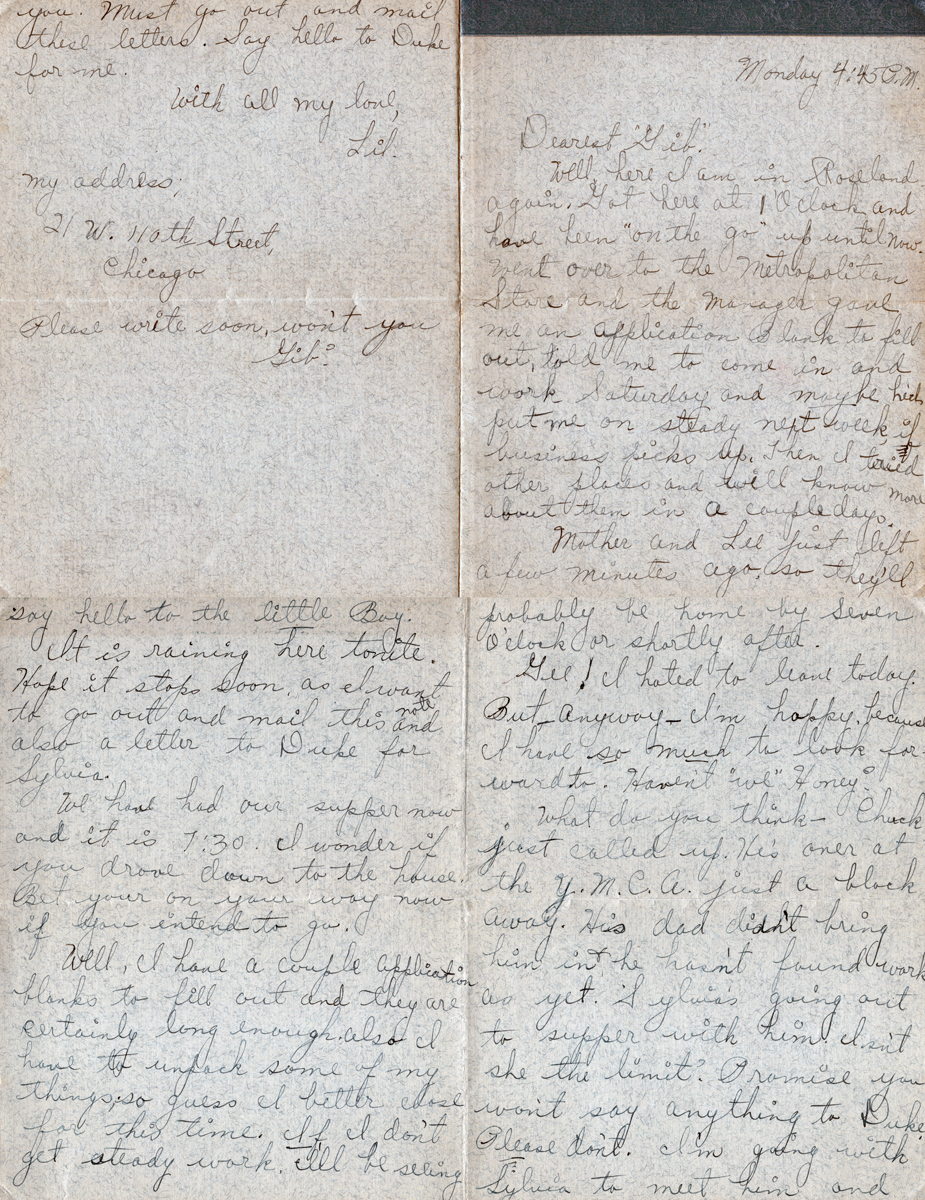 Monday 4:45 P.M.
Dearest "Gib".
Well, here I am in Roseland
again. Got here at 1 O'clock and
have been "on the go" up until now.
Went over to the Metropolitan
Store and the manager gave
me an application blank to fill
out, told me to come in and
work Saturday and maybe he'd
put me on steady next week if
business picks up. Then I tried
other places and will know more
about them in a couple days.
Mother and Lee just left
a few minutes ago, so they'll
probably be home by seven
O'clock or shortly after.
Gee! I hated to leave today.
But - anyway - I'm happy, because
I have so much to look for-
ward to. Haven't "we" Honey?
What do you think - Chuck
just called up. He's over at
the Y.M.C.A. just a block
away. His dad didn't bring
him in & he hasn't found work
as yet. Sylvia's going out
to supper with him. Isn't
she the limit? Promise you
won't say anything to Duke.
Please don't. I'm going with
Sylvia to meet him and
say hello to the little Boy.
It is raining here tonite.
Hope it stops soon, as I want
to go out and mail this note and
also a letter to Duke for
Sylvia.
We have had our supper now
and it is 7:30. I wonder if
you drove down to the house.
Bet your on your way now
if you intend to go.
Well, I have a couple application
blanks to fill out and they are
certainly long enough. also I
have to unpack some of my
things, so guess I better close
for this time. If I don't
get steady work, I'll be seeing
you. Must go out and mail
these letters. Say hello to Duke
for me.
With all my love,
Lil.
My address;
21 W. 110th Street,
Chicago
Please write soon, won't you
Gib?